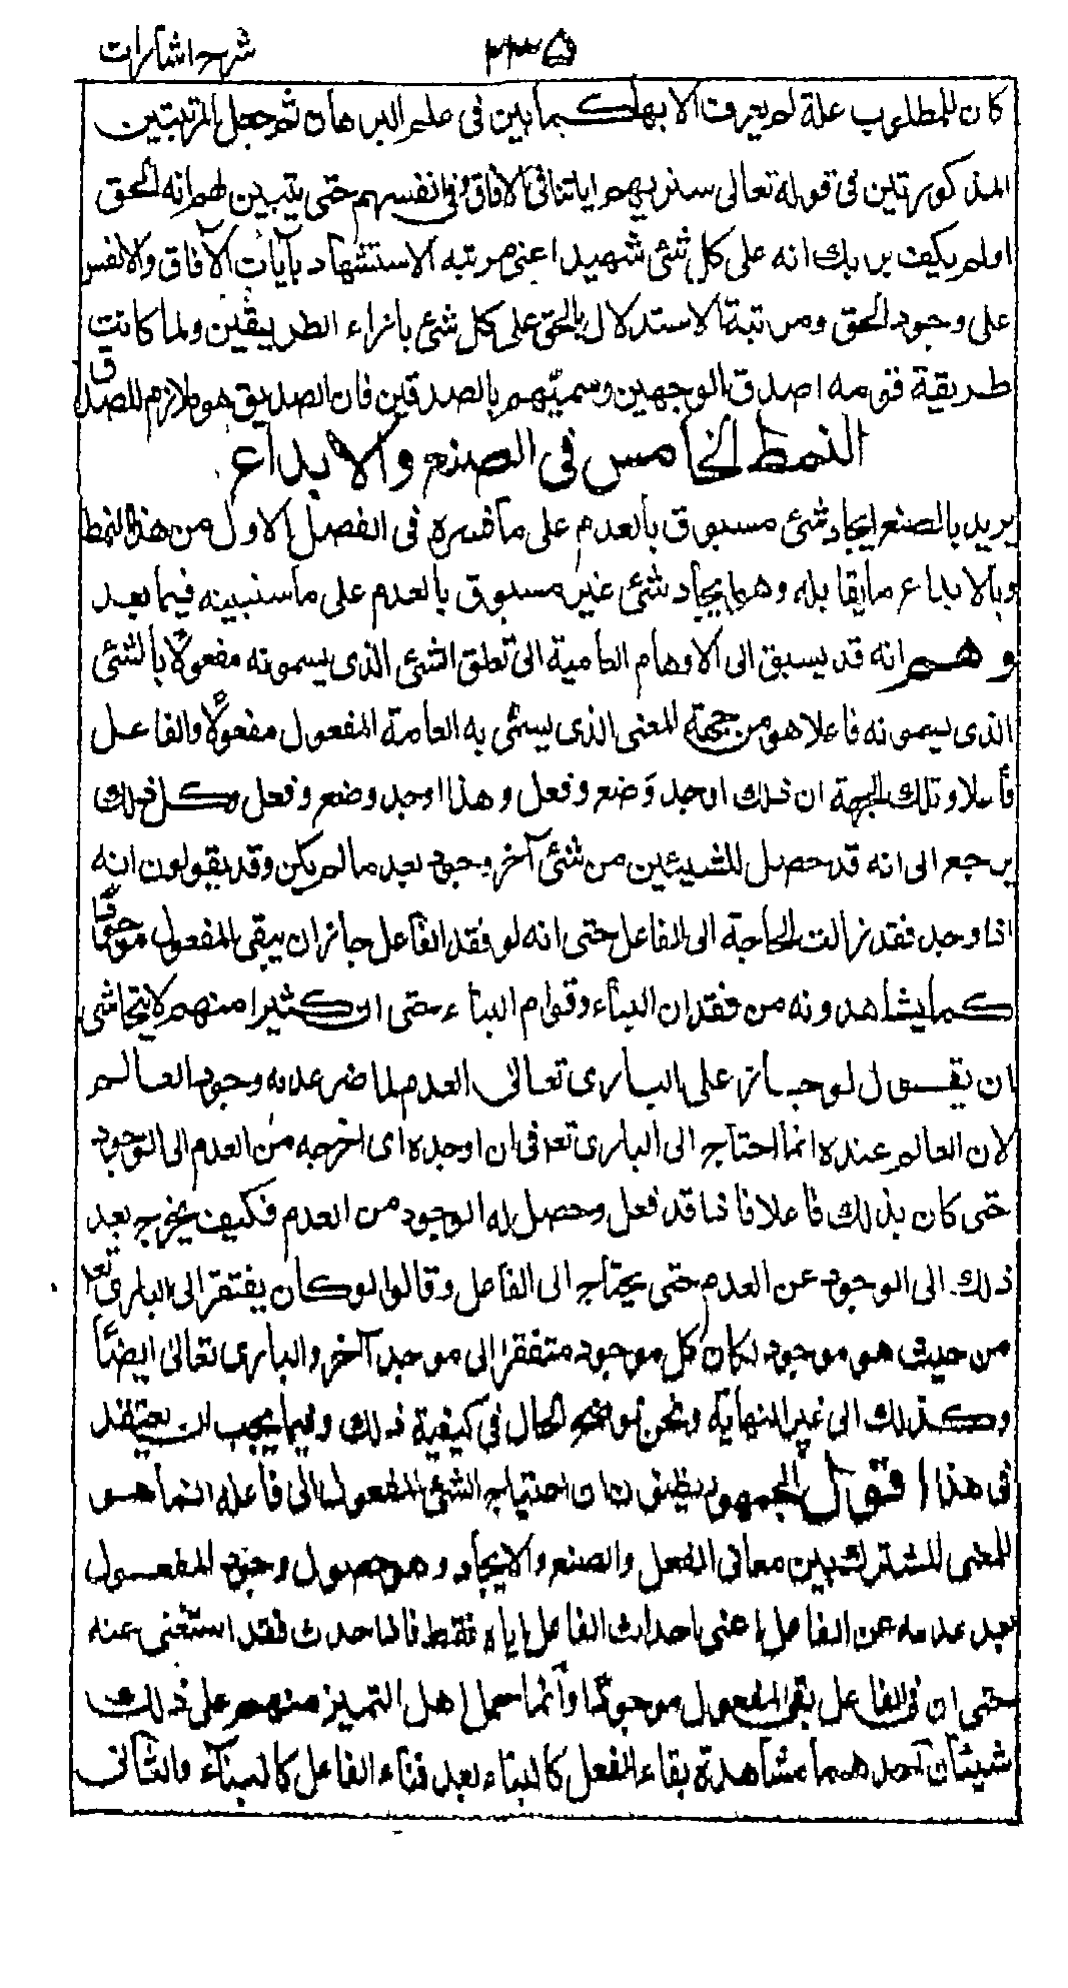 شرح اشارات
۲۳۵
كان للمطلوب علة لم يعرف الا بها كما بين فى علم البرهان ثم جعل المرتبتين
المذكورتين فى قوله تعالى سنريهم اياتنا فى الآفاق وفى انفسهم حتى يتبين لهم انه الحق
اولم يكف بربك انه على كل شئ شهيد اعنى مرتبه الاستشهاد بآيات الآفاق والانفس
على وجود الحق ومرتبة الاستدلال بالحق على كل شئ بازاء الطريقين ولما كانت
طريقة قومه اصدق الوجهين وسميّهم بالصديقين فان الصديق هو ملازم للصدق
النمط الخامس فى الصنع والابداع
يريد بالصنع ايجاد شئ مسبوق بالعدم على ما فسره فى الفصل الاول من هذا النمط
وبالابداع ما يقابله وهو ايجاد شئ غير مسبوق بالعدم على ما سنبينه فيما بعد
وهم انه قد يسبق الى الاوهام العامية الى تعلق الشئ الذى يسمونه مفعولاً بالشئ
الذى يسمونه فاعلا هو من جهة المعنى الذى يسمى به العامة المفعول مفعولاً والفاعل
فاعلا وتلك الجهة ان ذلك اوجد وَضع وفعل وهذا اوجد وضع وفعل وكل ذلك
يرجع الى انه قد حصل للشيئين من شئ آخر وجود بعد ما لم يكن وقد يقولون انه
اذا وجد فقد زالت الحاجة الى الفاعل حتى انه لو فقد الفاعل جاز ان يبقى المفعول موجودًا
كما يشاهدونه من فقدان البناء وقوام البناء حتى ان كثيرا منهم لا يتحاشى
ان يقول لو جاز على البارى تعالى العدم لما ضر عدمه وجود العالم
لان العالم عنده انما احتاج الى البارى تعہ فى ان اوجده اى اخرجه من العدم الى الوجود
حتى كان بذلك فاعلا فاذا قد فعل وحصل له الوجود من العدم فكيف يخرج بعد
ذلك الى الوجود عن العدم حتى يحتاج الى الفاعل وقالوا لو كان يفتقر الى البارى تعہ
من حيث هو موجود لكان كل موجود متفقرا الى موجد آخر والبارى تعالى ايضًا
وكذلك الى غير النهاية ونحن نوضح الحال فى كيفية ذلك وفيما يجب ان يعتقد
فى هذا اقول الجمهور يظنون ان احتياج الشئ المفعول الى فاعله انما هو
للمعنى المشترك بين معانى الفعل والصنع والايجاد وهو حصول وجود المفعول
بعد عدمه عن الفاعل اعنى احداث الفاعل اياه فقط فاذا حدث فقد استغنى عنه
حتى ان فنى الفاعل بقى المفعول موجودًا وانما حمل اهل التميز منهم على ذلك
شيئان احدهما مشاهدة بقاء الفعل كالبناء بعد فناء الفاعل كالبنآء والثانى